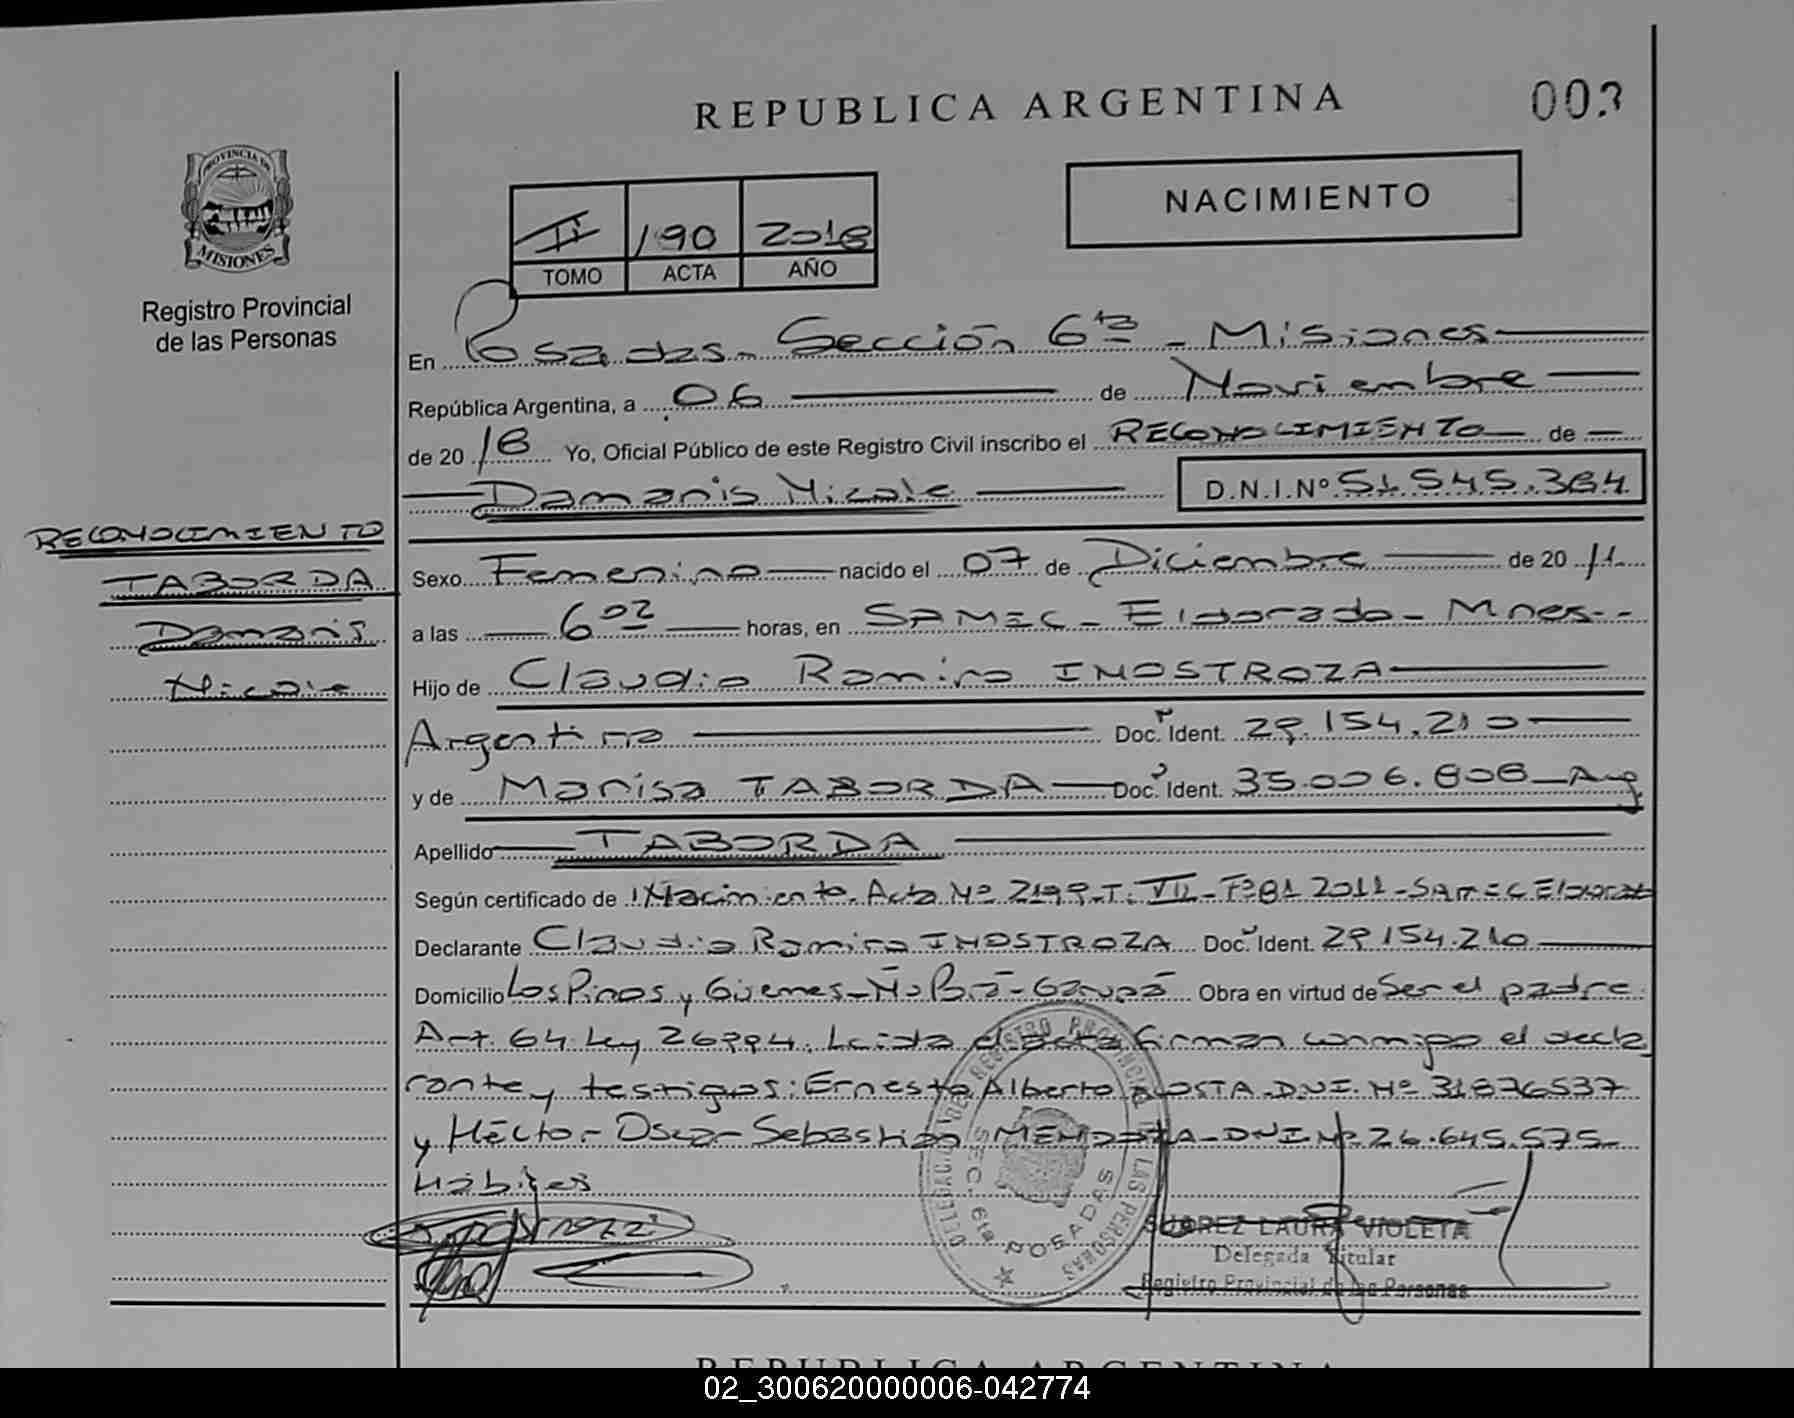 REPUBLICA ARGENTINA
003
PROVINCIA DE
MISIONES
Registro Provincial
de las Personas
II 190 2018
TOMO ACTA AÑO
NACIMIENTO
En Posadas - Sección 6ta - Misiones
República Argentina, a 06 de Noviembre
de 2018 Yo, Oficial Público de este Registro Civil inscribo el RECONOCIMIENTO de
Damaris Nicole D.N.I.Nº 51.545.384
RECONOCIMIENTO
TABORDA
Damaris
Nicole
Sexo Femenino nacido el 07 de Diciembre de 2011
a las 6 02 horas, en SAMEC - Eldorado - Mnes.
Hijo de Claudio Ramiro INOSTROZA
Argentina Doc. Ident. 29.154.210
y de Marisa TABORDA Doc. Ident. 35.006.808 - Arg
Apellido TABORDA
Según certificado de Nacimiento. Acta Nº 2199 - T. VII - Fº 81 2011 - SAMEC Eldorado
Declarante Claudio Ramiro INOSTROZA Doc. Ident. 29.154.210
Domicilio Los Pinos y Güemes - Ñu Porá - Garupá Obra en virtud de Ser el padre
Art. 64 Ley 26994. Leida el acta firman conmigo el decla
rante y testigos: Ernesto Alberto ACOSTA - D.N.I. Nº 31876537
y Héctor Oscar Sebastian MENDOZA - DNI Nº 26.645.575
Hábiles
DELEGACION DEL REGISTRO PROVINCIAL DE LAS PERSONAS
SEC. 6ta POSADAS
SUAREZ LAURA VIOLETA
Delegada Titular
Registro Provincial de las Personas
REPUBLICA ARGENTINA
02_300620000006-042774